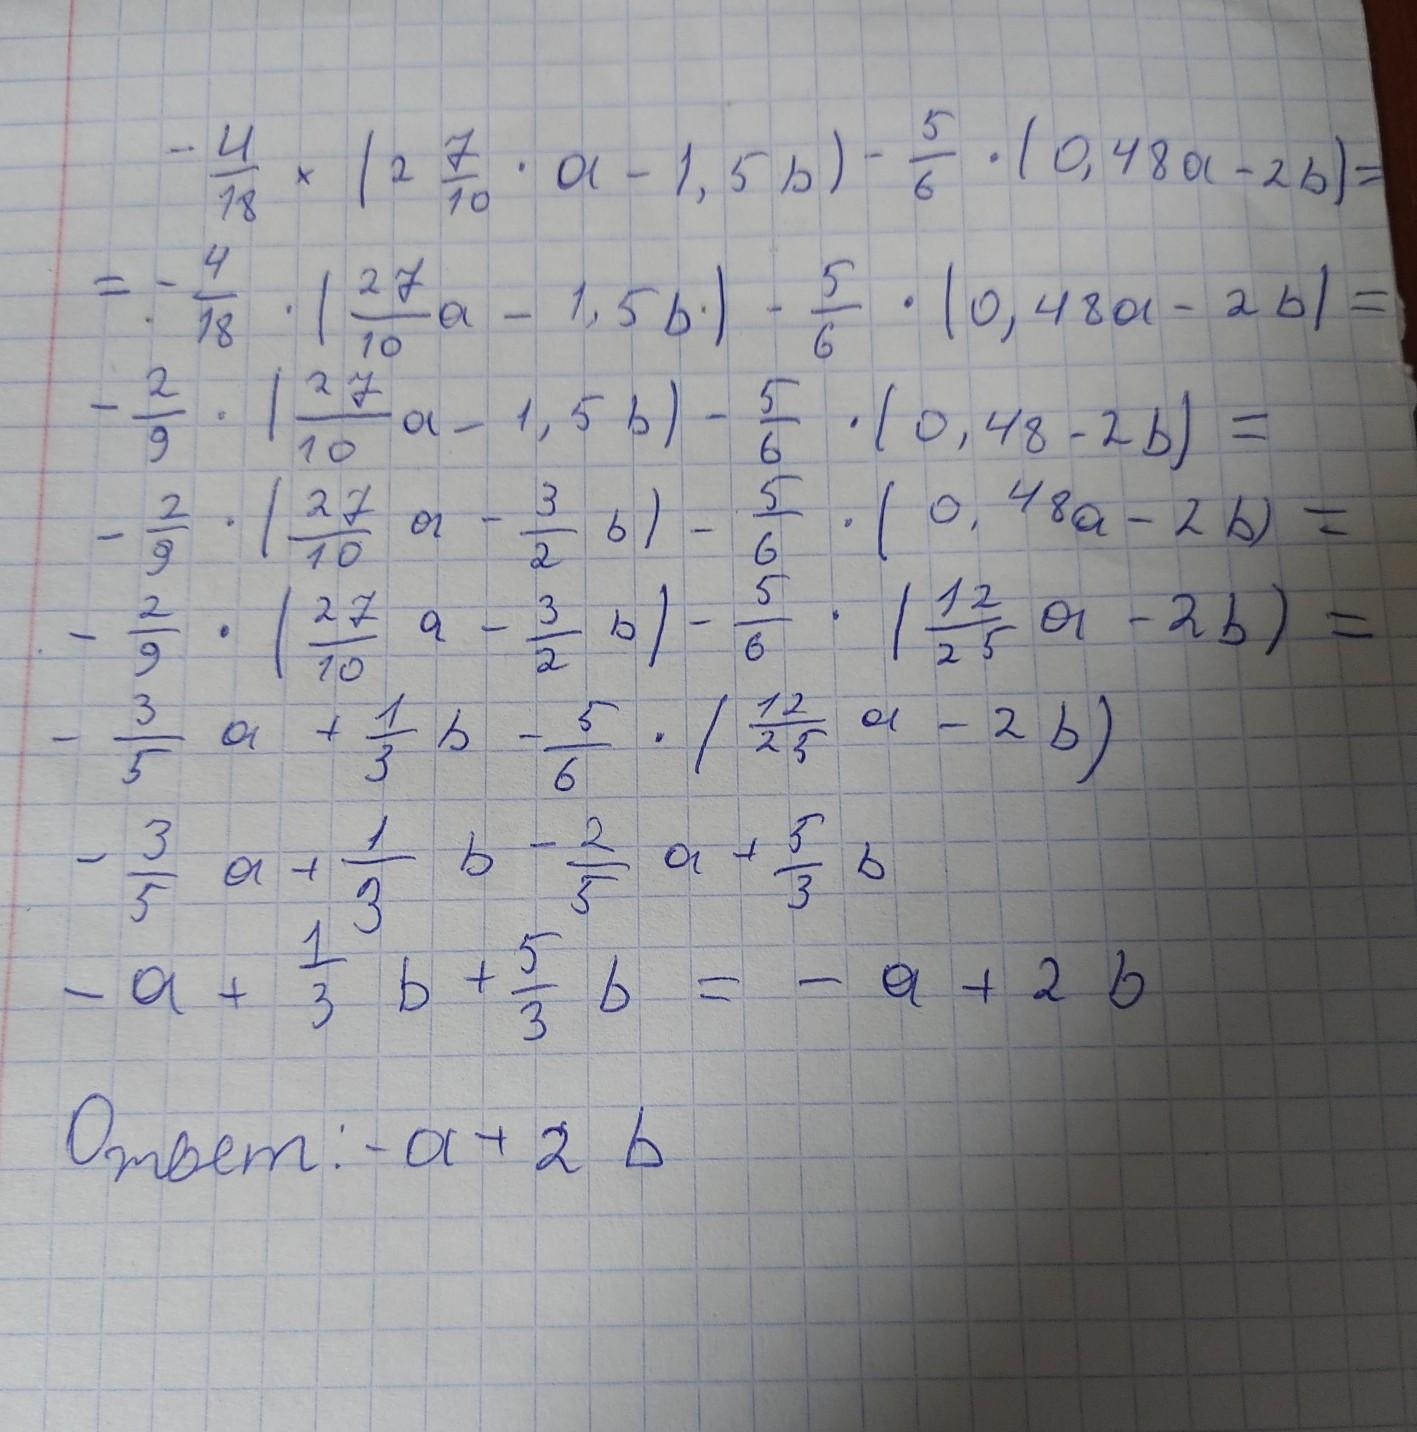 - 4/18 × (2 7/10 · a - 1,5b) - 5/6 · (0,48a - 2b) =
= - 4/18 · (27/10 a - 1,5b·) - 5/6 · (0,48a - 2b) =
- 2/9 · (27/10 a - 1,5b) - 5/6 · (0,48 - 2b) =
- 2/9 · (27/10 a - 3/2 b) - 5/6 · (0,48a - 2b) =
- 2/9 · (27/10 a - 3/2 b) - 5/6 · (12/25 a - 2b) =
- 3/5 a + 1/3 b - 5/6 · (12/25 a - 2b)
- 3/5 a + 1/3 b - 2/5 a + 5/3 b
- a + 1/3 b + 5/3 b = - a + 2b
Ответ: - a + 2b